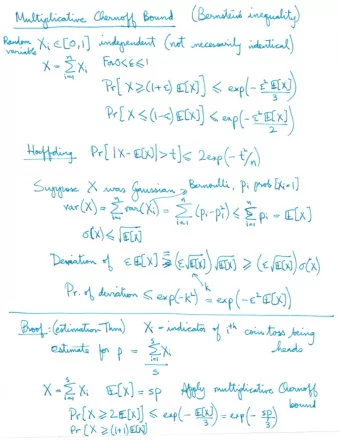 Multiplicative Chernoff Bound (Bernstein inequality)
Random variable Xᵢ ∈ [0,1] independent (not necessarily identical)
X = Σᵢ₌₁ⁿ Xᵢ For 0<ε≤1
Pr[X ≥ (1+ε) E[X]] ≤ exp(-ε² E[X]/3)
Pr[X ≤ (1-ε) E[X]] ≤ exp(-ε² E[X]/2)
Hoeffding Pr[|X-E[X]|>t] ≤ 2exp(-t²/n)
Suppose X was Gaussian → Bernoulli, pᵢ prob [Xᵢ=1]
var(X) = Σᵢ₌₁ⁿ var(Xᵢ) = Σᵢ₌₁ⁿ (pᵢ-pᵢ²) ≤ Σᵢ₌₁ⁿ pᵢ = E[X]
σ(X) ≤ √E[X]
Deviation of ε E[X] = (ε√E[X]) √E[X] ≥ (ε√E[X]) σ(X)
k
Pr. of deviation ≤ exp(-k²) = exp(-ε² E[X])
Proof: (estimation Thm) Xᵢ - indicator of iᵗʰ coin toss being heads
estimate for p = Σᵢ₌₁ˢ Xᵢ / s
X = Σᵢ₌₁ˢ Xᵢ E[X] = sp Apply multiplicative Chernoff bound
Pr[X ≥ 2E[X]] ≤ exp(-E[X]/3) = exp(-sp/3)
Pr[X ≥ (1+1)E[X]